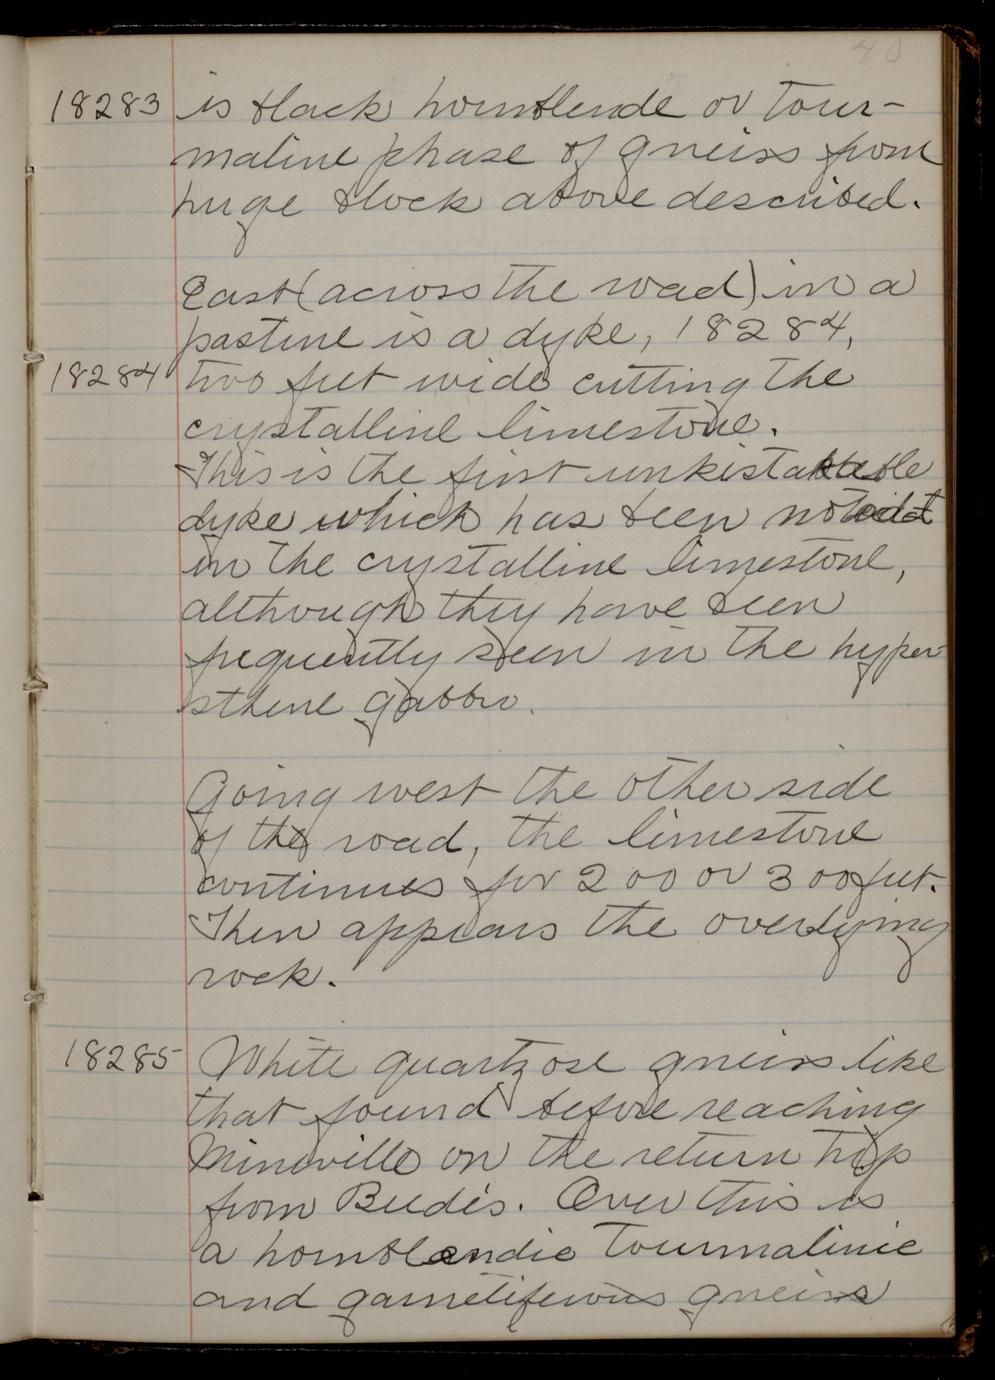 40
18283 is black hornblende or tour-
maline phase of gneiss from
huge block above described.
East (across the road) in a
pasture is a dyke, 18284,
18284 two feet wide cutting the
crystalline limestone.
This is the first unmistakable
dyke which has been noted
in the crystalline limestone,
although they have been
frequently seen in the hyper
sthene gabbro.
Going west the other side
of the road, the limestone
continues for 200 or 300 feet.
Then appears the overlying
rock.
18285 White quartzose gneiss like
that found before reaching
Mineville on the return trip
from Beede's. Over this is
a hornblendic tourmalinic
and garnetiferous gneiss